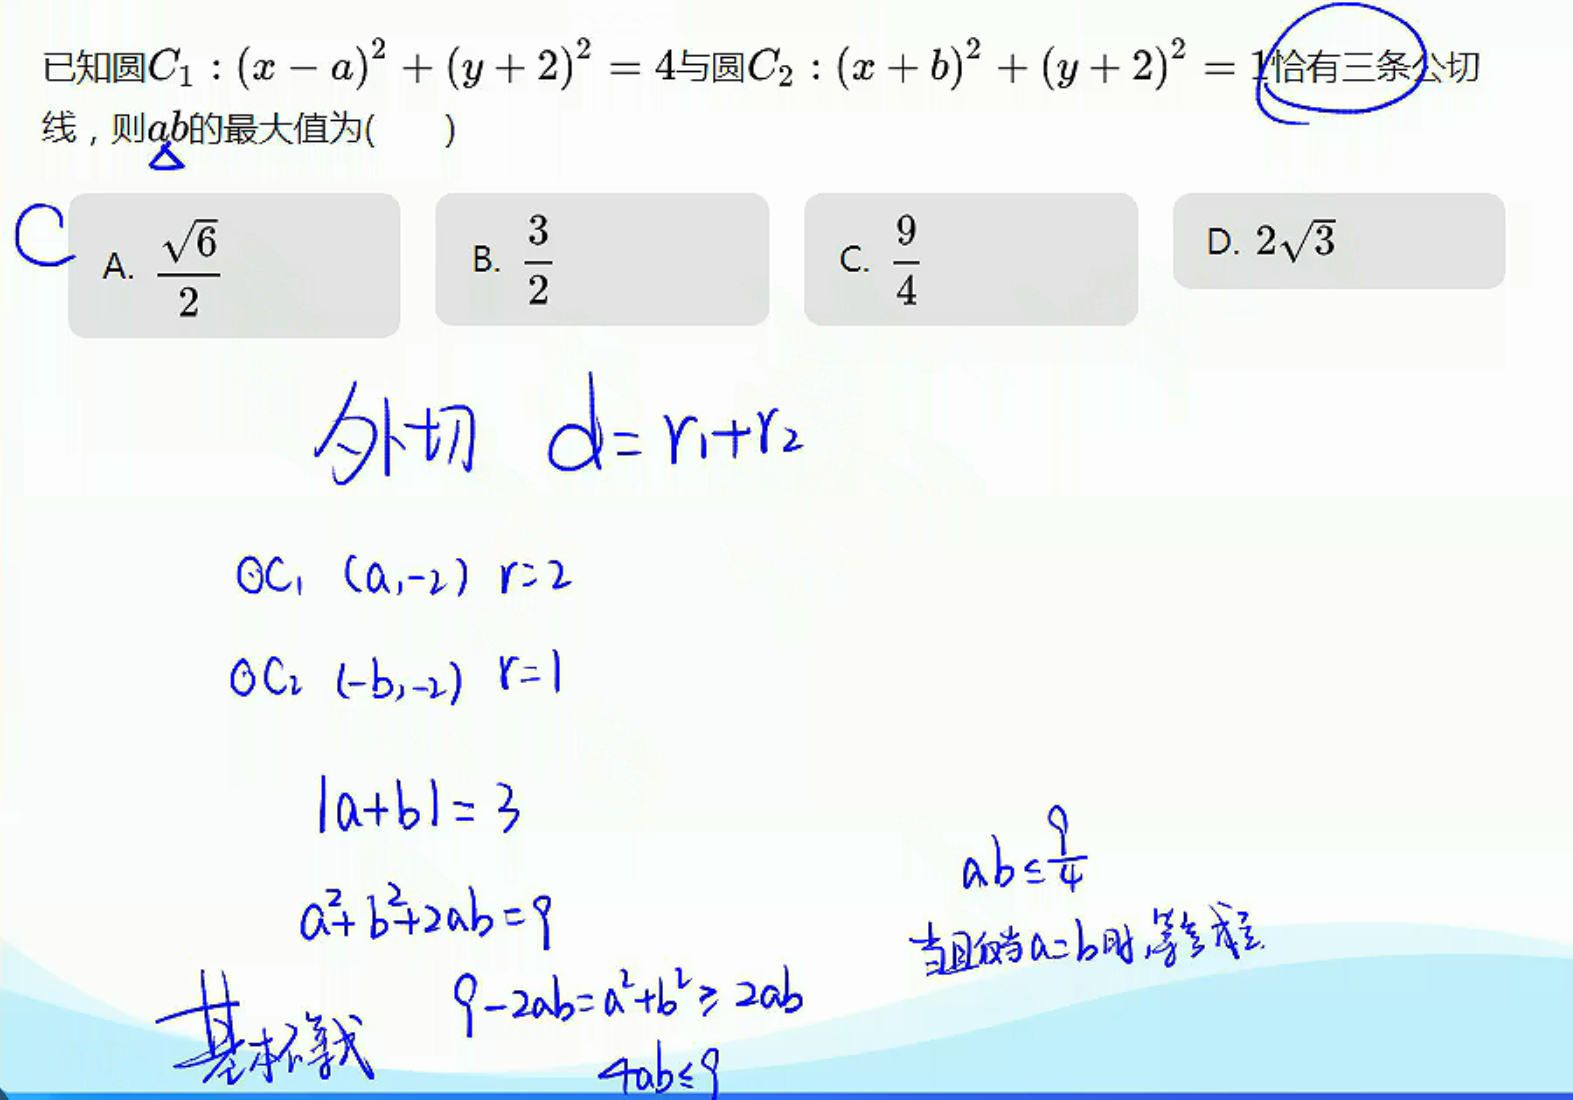 已知圆C₁ : (x − a)² + (y + 2)² = 4与圆C₂ : (x + b)² + (y + 2)² = 1恰有三条公切
线，则ab的最大值为(　　)
C
A. √6/2 B. 3/2 C. 9/4 D. 2√3
外切 d=r₁+r₂
⊙C₁ (a,-2) r=2
⊙C₂ (-b,-2) r=1
|a+b|=3
a²+b²+2ab=9
基本不等式 9-2ab=a²+b²≥2ab
4ab≤9
ab≤9/4
当且仅当a=b时,等号成立